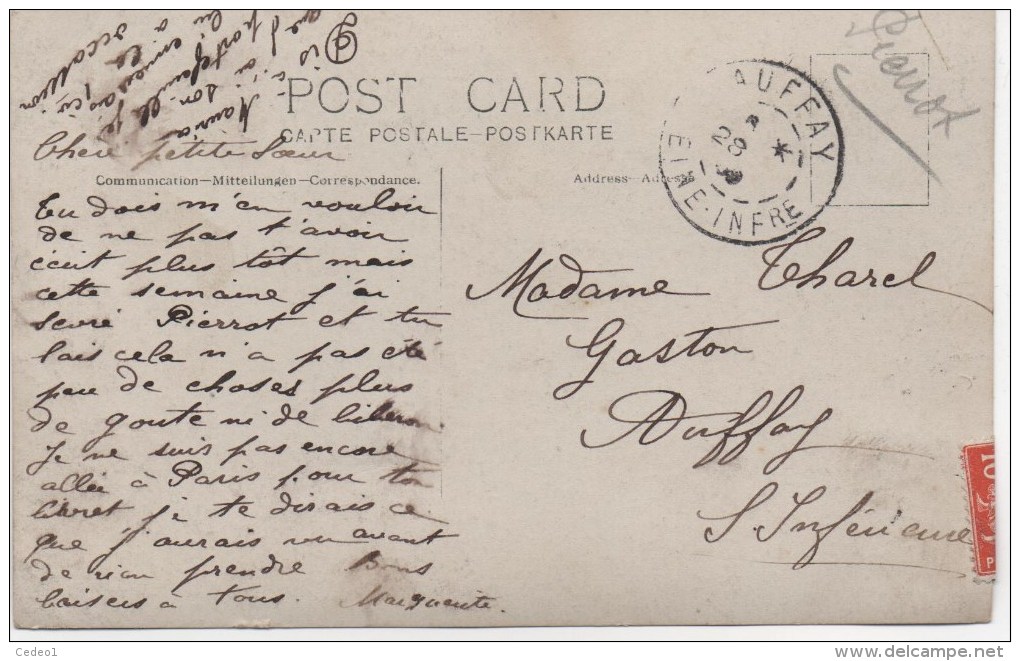 Pierrot
POST CARD
CARTE POSTALE—POSTKARTE
Communication—Mitteilungen—Correspondance.
Address—Adresse
AUFFAY
28
EINE-INFRE
Chere petite Sœur
Tu dois m'en vouloir
de ne pas t'avoir
écrit plus tôt mais
cette semaine j'ai
sevré Pierrot et tu
sais cela n'a pas été
peu de choses plus
de goute ni de biberon
Je ne suis pas encore
allée à Paris pour ton
livret je te dirais ce
que j'aurais vu avant
de rien prendre Bons
baisers à tous. Marguerite.
Madame Tharel
Gaston
Auffay
S. Inférieure
10
Cedeo1
delcampe.net